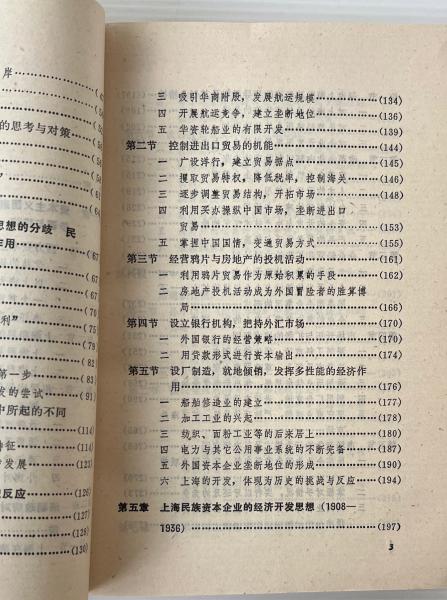 岸………………(6
的思考与对策……(6
”………………(6
思想的分歧 民
作用……………(67
(67
(67
(70
利”……………(75
(79
(82
第一步…………(83
发的尝试………(91
中所起的不同
(114)
特征……………(114)
与发展…………(123)
(126)
反应……………(126)
(128)
(130)
三 吸引华商附股，发展航运规模………………(134)
四 开展航运竞争，建立垄断地位………………(136)
五 华资轮船业的有限开发………………………(139)
第二节 控制进出口贸易的机能………………………(144)
一 广设洋行，建立贸易据点……………………(145)
二 攫取贸易特权，降低税率，控制海关………(146)
三 逐步调整贸易结构，开拓市场………………(148)
四 利用买办操纵中国市场，垄断进出口
贸易………………………………………………(153)
五 掌握中国国情，变通贸易方式………………(155)
第三节 经营鸦片与房地产的投机活动………………(161)
一 利用鸦片贸易作为原始积累的手段…………(162)
二 房地产投机活动成为外国冒险者的胜算博
局…………………………………………………(166)
第四节 设立银行机构，把持外汇市场………………(170)
一 外国银行的经营策略…………………………(170)
二 用贷款形式进行资本输出……………………(174)
第五节 设厂制造，就地倾销，发挥多性能的经济作
用…………………………………………………(176)
一 船舶修造业的建立……………………………(177)
二 加工工业的兴起………………………………(178)
三 纺织、面粉工业等的后来居上………………(180)
四 电力与其它公用事业系统的不断完备………(187)
五 外国资本企业垄断地位的形成………………(190)
六 上海的开发，体现为历史的挑战与反应……(194)
第五章 上海民族资本企业的经济开发思想（1908—
1936）……………………………………………(197)
3